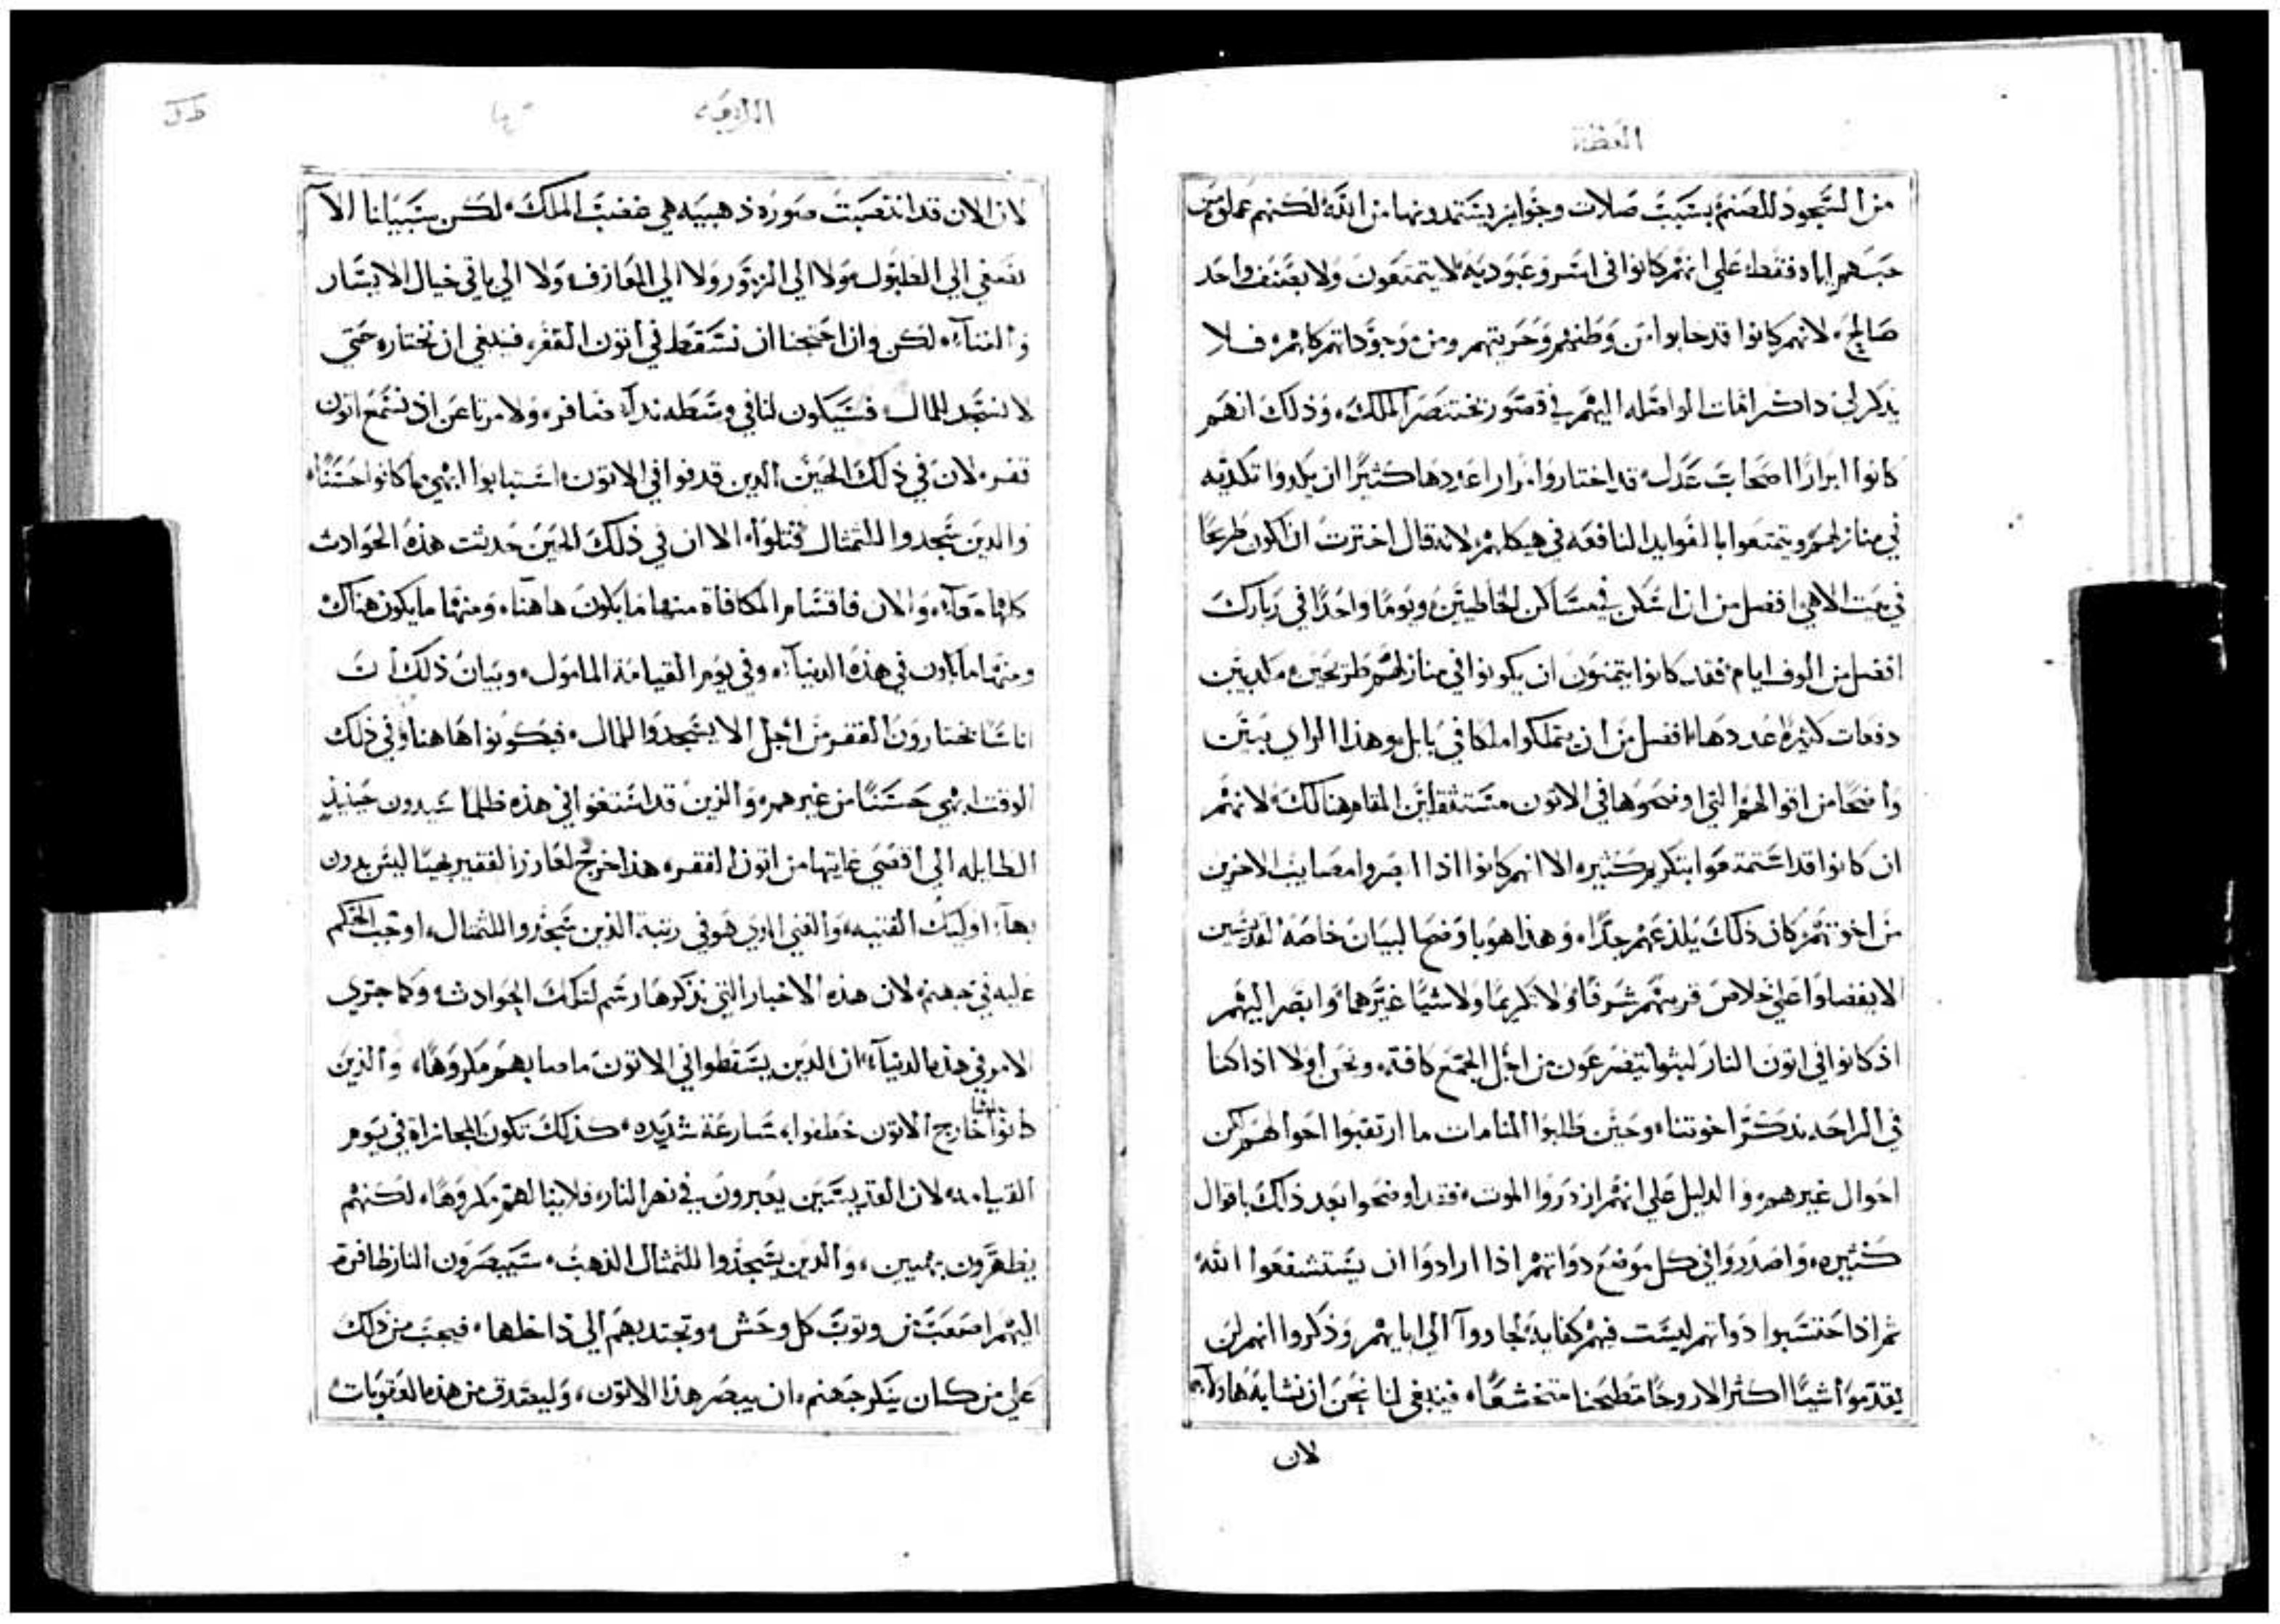 العظة
من السجود للصنم بسبب صلات وجوايز يستمدونها من الله لكنهم عملوه من
حبهم اياه فقط، على انهم كانوا في اسر وعبوديه لا يتمتعون ولا بصنف واحد
صالح، لانهم كانوا قد خابوا من وطنهم وحريتهم ومن وجوداتهم كلهم، فلا
يذكر لي ذاكر امات الواصله اليهم في قصور بختنصر الملك، وذلك انهم
كانوا ابرارًا اصحاب عدل، قد اختاروا مرارا عددها كثيرًا ان يكدوا تكديه
في منازلهم ويتمتعوا بالفوايد النافعه في هيكلهم، لانه قال اخترت ان اكون طريحًا
في بيت الاهي افضل من ان اسكن في مساكن الخاطيين، ويومًا واحدًا في ديارك
افضل من الوف ايام، فقد كانوا يتمنون ان يكونوا في منازلهم مطروحين مكديين
دفعات كثيرة عددها، افضل من ان يتملكوا املاكا في بابل، وهذا الراي يبين
واضحًا من اقوالهم التي اوضحوها في الاتون مستثقلين المقام هنالك، لانهم
ان كانوا قد استمتعوا بتكريم كثير، الا انهم كانوا اذا ابصروا مصايب الاخرين
من اخوتهم كان ذلك يلذعهم جدًا، وهذا هو باوضح البيان خاصة القديسين
الا يفضلوا على خلاص قريبهم شرفًا ولا تكريمًا ولا شيًا غيرهما، وابصر اليهم
اذ كانوا في اتون النار لبثوا يتضرعون من اجل الجمع كافة، ونحن اولا اذا كنا
في الراحة، نذكر اخوتنا، وحين طلبوا المنامات ما ارتقبوا احوالهم لكن
احوال غيرهم، والدليل على انهم ازدروا الموت، فقد اوضحوا بعد ذلك باقوال
كثيره، واصدروا في كل موضع ذواتهم اذا ارادوا ان يستشفعوا الله
ثم اذا احتسبوا ذواتهم ليست فيهم كفاية، لجاروا الى ابايهم، وذكروا انهم لن
يقدموا شيًا اكثر الا روحًا متطحنا متخشعًا، فينبغي لنا نحن ان نشابه هاولايهم
لان
الرابعه
لان الان قد انتصبت صورة ذهبيه هي غضب الملك، لكن سبيلنا الا
نصغي الى الطبول ولا الى الزمور ولا الى المعازف، ولا الى باقي خيال الايسار
والغناء، لكن وان احتجنا ان نسقط في اتون الفقر، فينبغي ان نختاره حتى
لا نسجد للمال، فسيكون لنا في وسطه ندآء صافر، ولا مرتاعن اذ نسمع اتون
فقر، لان في ذلك الحين الذين قدفوا في الاتون، استبانوا ابهي ما كانوا حسنًا،
والذين سجدوا للتمثال قتلوا، الا ان في ذلك الحين حديثت هذه الحوادث
كلها معآ، والان فاقسام المكافاة منها ما يكون هاهنا، ومنها ما يكون هناك
ومنها ما يكون في هذه الدنيآء، وفي يوم القيامة المامول، وبيان ذلك ان
اناسًا يختارون الفقر من اجل الا يسجدوا للمال، فيكونوا هاهنا وفي ذلك
الوقت ابهي حسنًا من غيرهم، والذين قد استغنوا في هذه ظلما سيدون حينيذٍ
الطايله الى اقصى غايتها من اتون الفقر، هذا خرج لعازر الفقير بهيا ليس بدون
بهآء اوليك الفتيه، والغني الذي هو في رتبة الذين سجدوا للتمثال، اوجب الحكم
عليه في جهنم، لان هذه الاخبار التي نذكرها رسم لتلك الحوادث، وكما جرى
الامر في هذه الدنيآء ان الذين يسقطوا في الاتون ما صابهم مكروهًا، والذين
كانوا خارج الاتون خطفوا مسارعة شديده، كذلك تكون المجازاة في يوم
القيامه، لان القديسين يعبرون في نهر النار، فلا ينالهم مكروهًا، لكنهم
يظهرون بهيين، والذين يسجدوا للتمثال الذهب، سيبصرون النار ظافرة
اليهم اصعب من وثوب كل وحش، وتجتذبهم الى داخلها، فيجب من ذلك
على من كان ينكر جهنم، ان يبصر هذا الاتون، وليصدق من هذه العقوبات